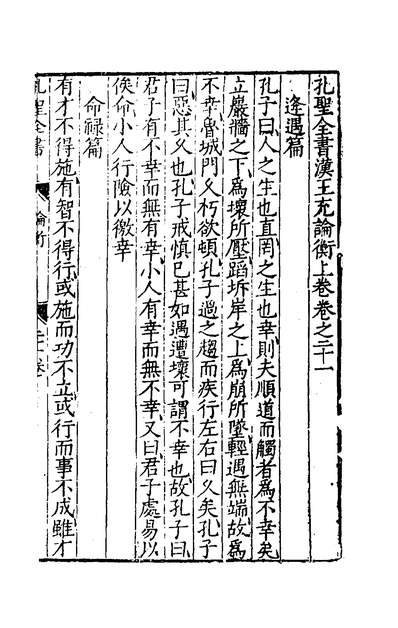 孔聖全書漢王充論衡上卷卷之二十一
逢遇篇
孔子曰人之生也直罔之生也幸則夫順道而觸者為不幸矣
立巖牆之下為壞所壓蹈坼岸之上為崩所墜輕遇無端故為
不幸魯城門久朽欲頓孔子過之趨而疾行左右曰久矣孔子
曰惡其久也孔子戒慎已甚如遇遭壞可謂不幸也故孔子曰
君子有不幸而無有幸小人有幸而無不幸又曰君子處易以
俟命小人行險以徼幸
命祿篇
有才不得施有智不得行或施而功不立或行而事不成雖才
孔聖全書
論衡